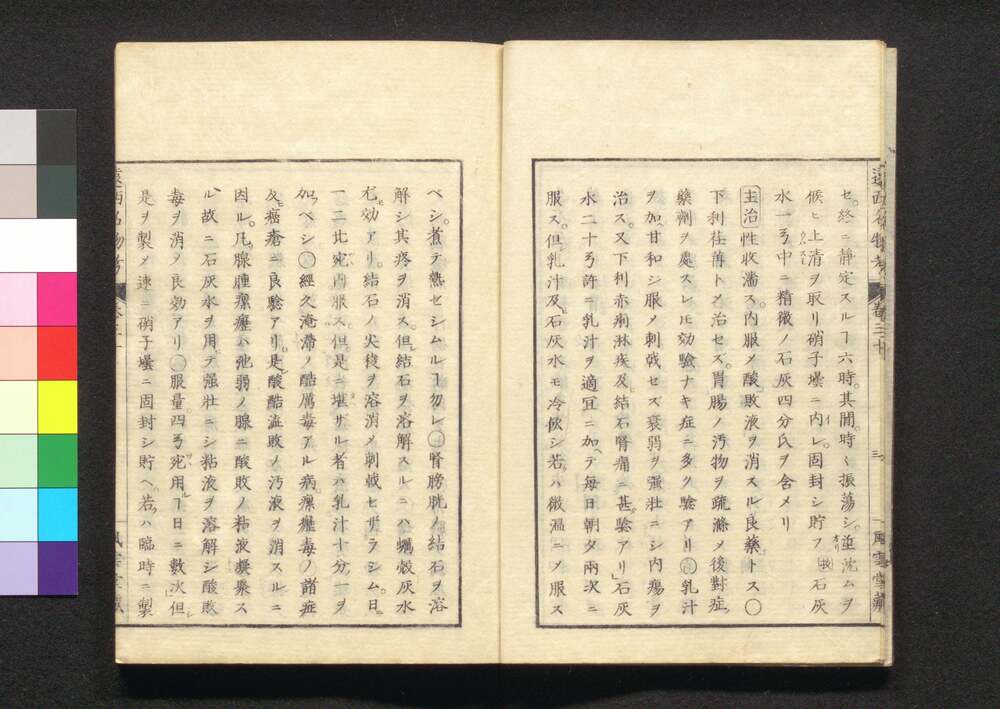 セ。終ニ靜定スルヿ六時。其間時々振蕩シ。渣沈ムヲ
候ヒ上清ヲ取リ硝子壜ニ内レ。固封シ貯フ㊟石灰
水一弓中ニ精微ノ石灰四分氏ヲ含メリ
主治 性收濇ス。内服メ酸敗液ヲ消スル良藥トス〇
下利荏苒トメ治セズ。胃腸ノ汚物ヲ疏滌メ後對症
藥劑ヲ處スレ𪜈効驗ナキ症ニ多ク驗アリ〇乳汁
ヲ加ヘ甘和シ服メ刺戟セズ衰弱ヲ強壯ニシ内瘍ヲ
治ス。又下利赤痢淋疾及結石腎痛ニ甚驗アリ」石灰
水二十弓許ニ乳汁ヲ適冝ニ加ヘテ毎日朝夕兩次ニ
服ス。但シ乳汁及石灰水モ冷候シ若ハ微温ニメ服ス
ベシ。煮テ熱セシムルヿ勿レ〇腎膀胱ノ結石ヲ溶
解シ其疼ヲ消ス。但結石ヲ溶解スルニハ蠣殻灰水
尤効アリ。結石ノ尖稜ヲ溶消メ刺戟セザラシム。日
一二比宛内服ス。但是ニ堪ザル者ハ乳汁十分一ヲ
加ベシ〇經久淹滯ノ酷厲毒アル病瘰癧毒ノ諸症
及癌瘡ニ良驗アリ。是酸酷澁敗ノ汚液ヲ消スルニ
因ル。凡腺腫瘰癧ハ弛弱ノ腺ニ酸敗ノ粘液凝聚ス
ル故ニ石灰水ヲ用テ強壯ニシ粘液ヲ溶解シ酸敗
毒ヲ消メ良効アリ〇服量。四弓宛用ヿ日ニ數次但
是ヲ製メ速ニ硝子壜ニ固封シ貯ヘ若ハ臨時ニ製